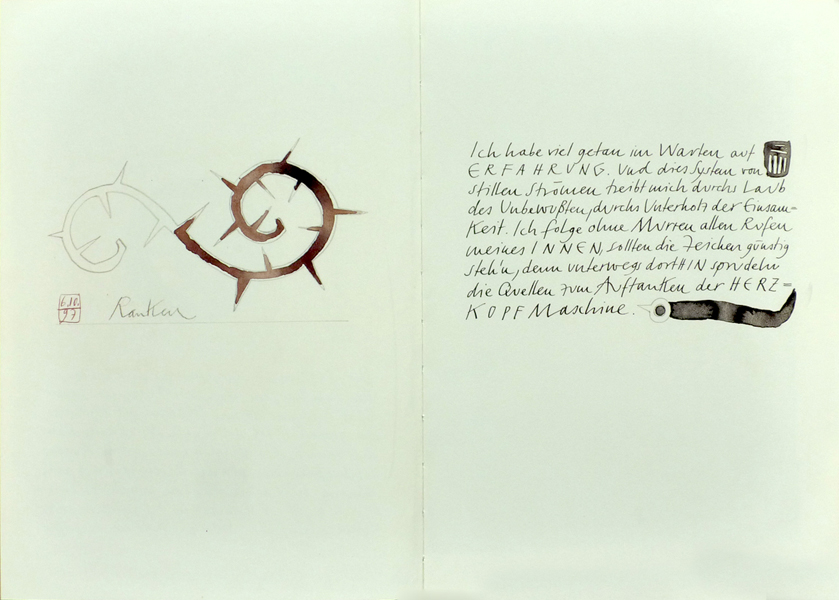 6.10.
97
Ranken
Ich habe viel getan im Warten auf
ERFAHRUNG. Und dies System von
stillen Strömen treibt mich durchs Laub
des Unbewußten, durchs Unterholz der Einsam=
keit. Ich folge ohne Murren allen Rufen
meines INNEN, sollten die Zeichen günstig
steh'n, denn unterwegs dortHIN sprudeln
die Quellen zum Auftanken der HERZ=
KOPF Maschine.